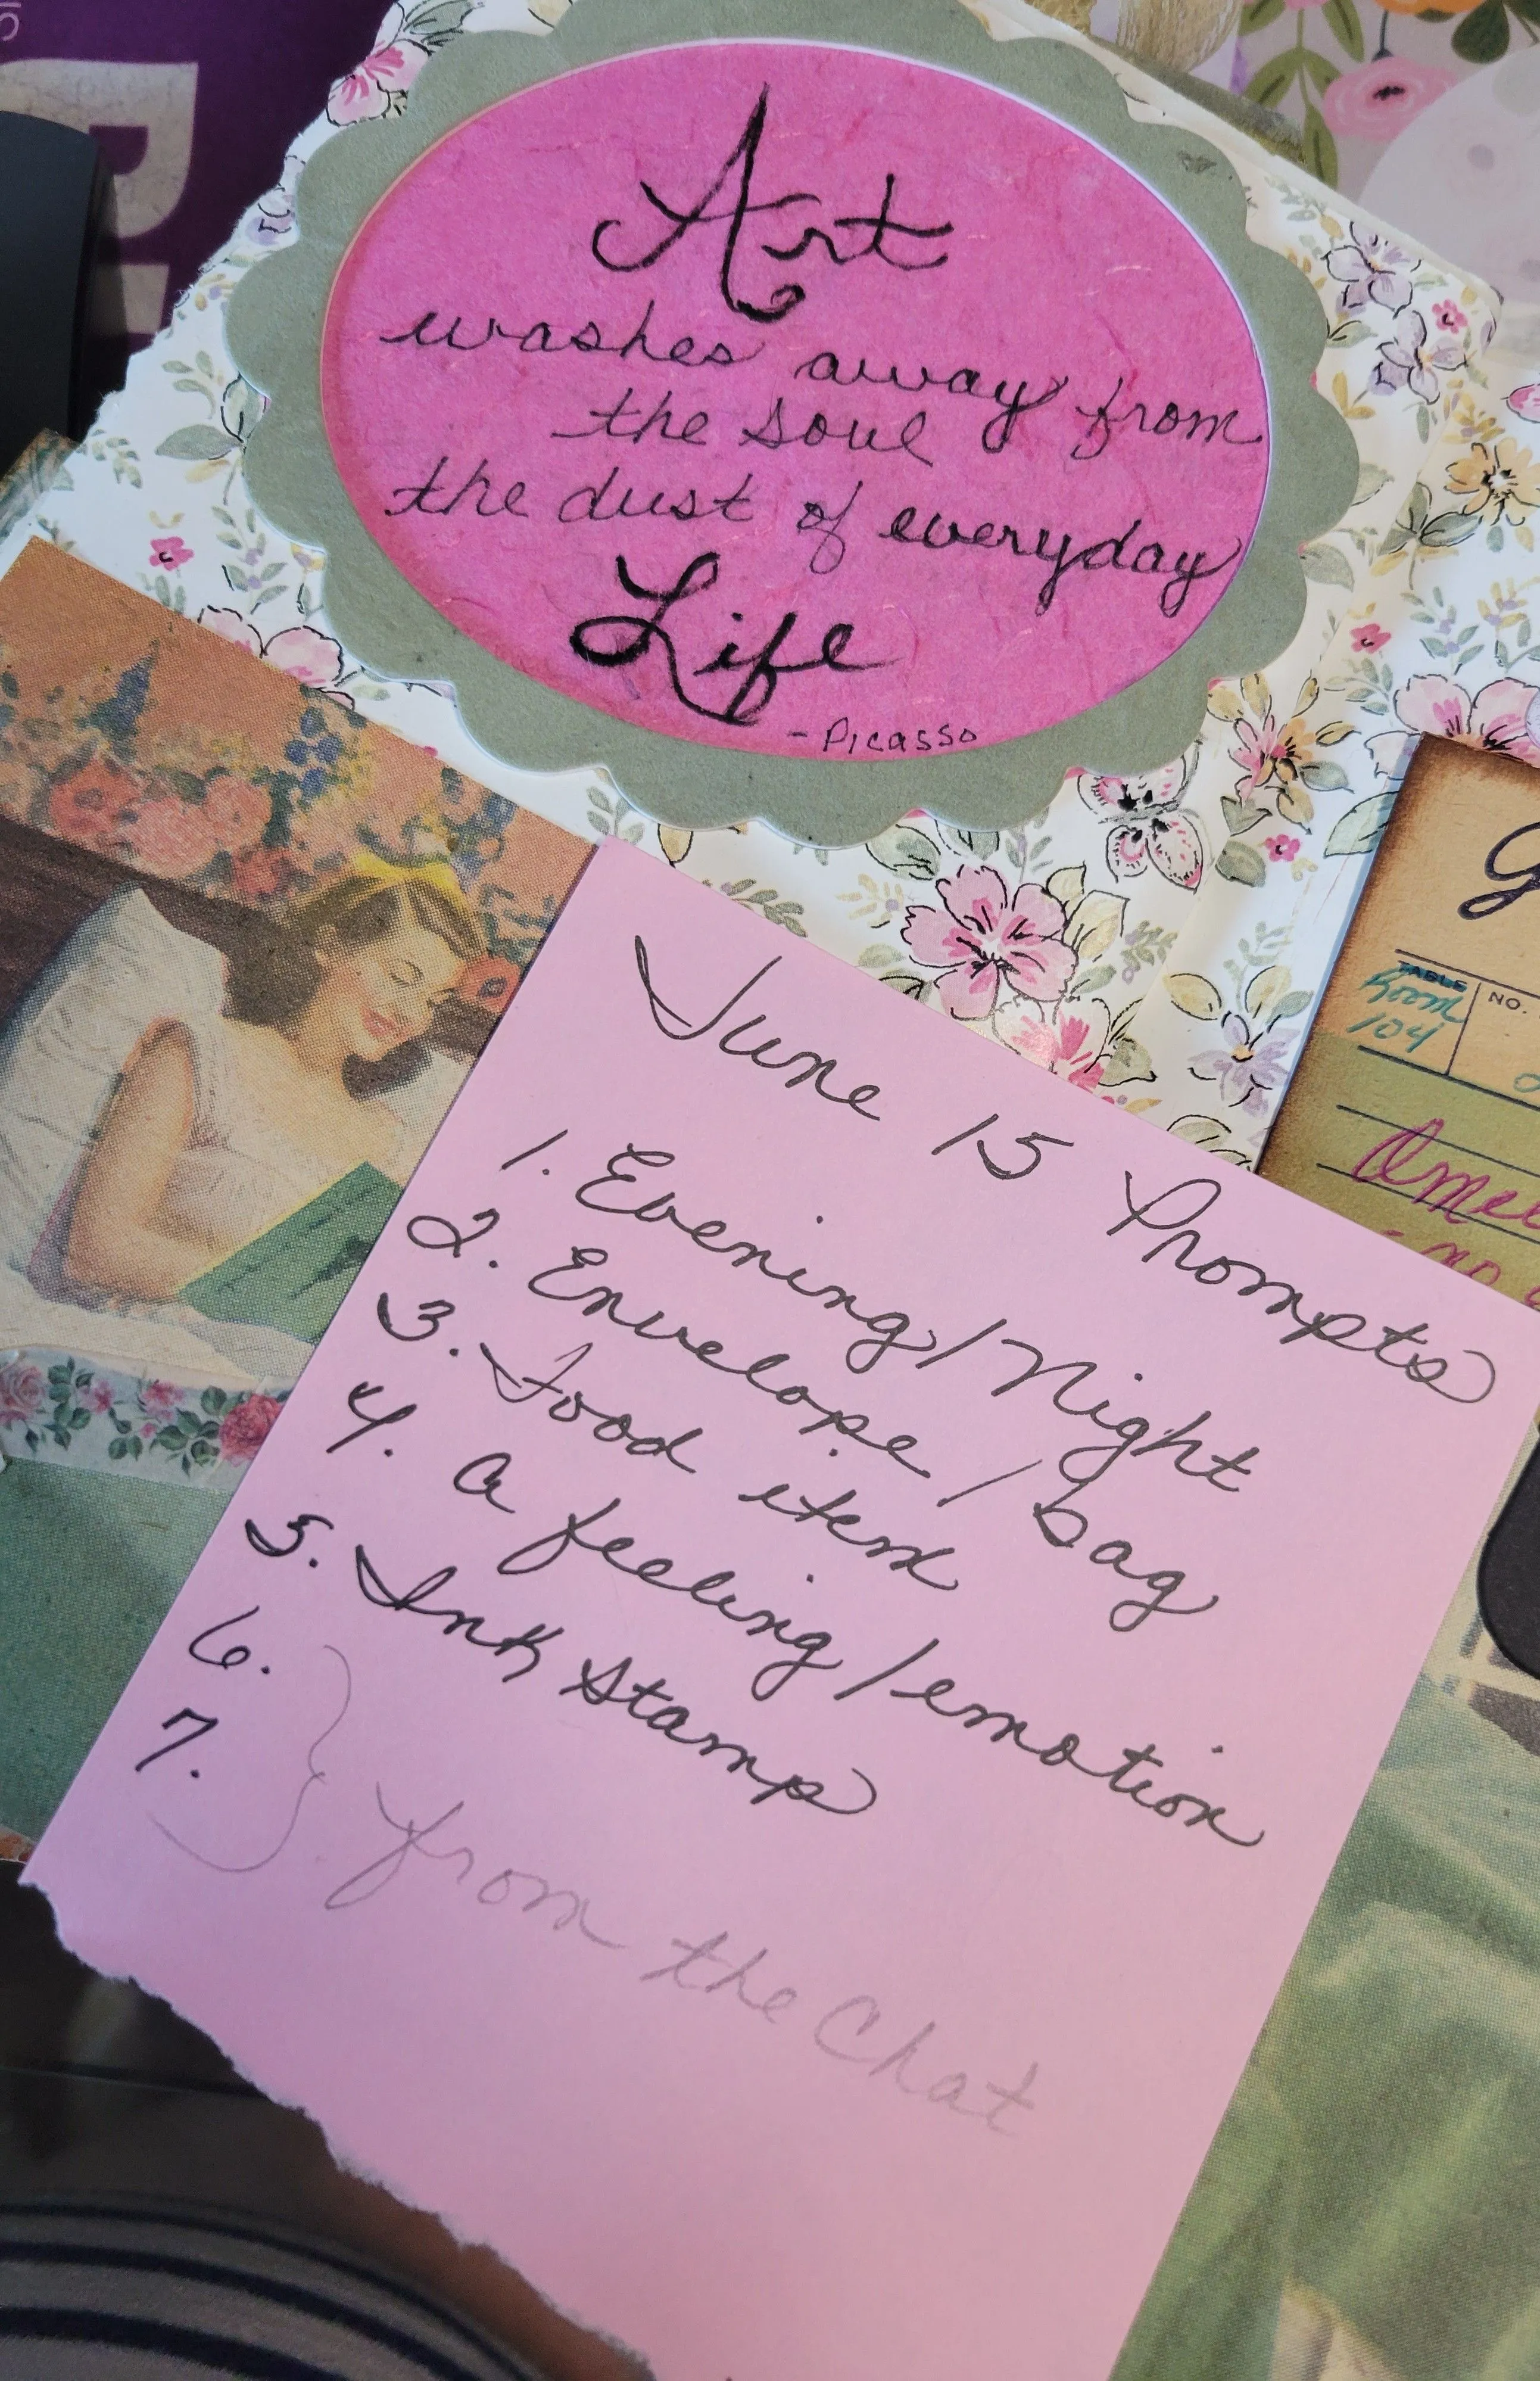 Art
washes away from
the soul
the dust of everyday
Life
- Picasso
June 15 Prompts
1. Evening/Night
2. Envelope / bag
3. Food item
4. a feeling/emotion
5. Ink Stamp
6.
7.
from the Chat
TABLE
NO.
Room
104